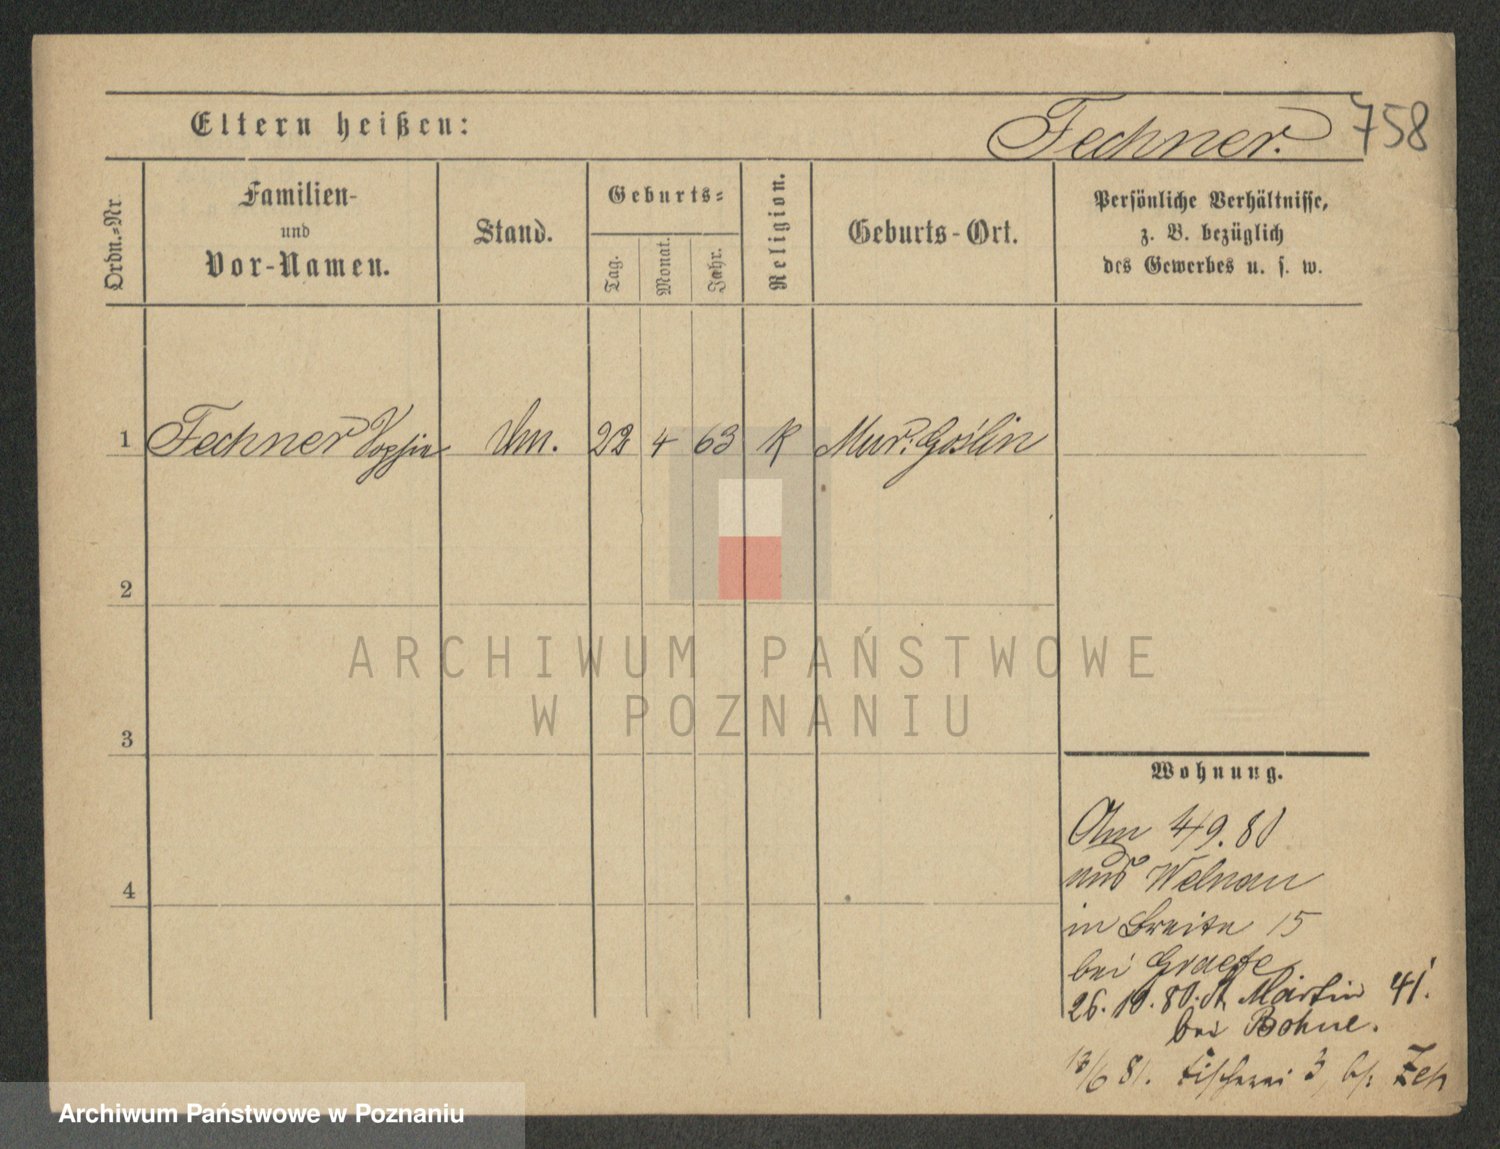 Eltern heißen:
Fechner.
758
Ordn.-Nr.
Familien-
und
Vor-Namen.
Stand.
Geburts-
Tag.
Monat.
Jahr.
Religion.
Geburts-Ort.
Persönliche Verhältnisse,
z. B. bezüglich
des Gewerbes u. s. w.
1 Fechner Sophie 22 4 63 K Mur: Goślin
2
3
4
ARCHIWUM PAŃSTWOWE
W POZNANIU
Wohnung.
Am 4/9. 80
aus Welnau
in Breite 15
bei Graefe
26. 10. 80. St. Martin 41.
bei Bohne.
/6 81. Fischerei 3
Archiwum Państwowe w Poznaniu